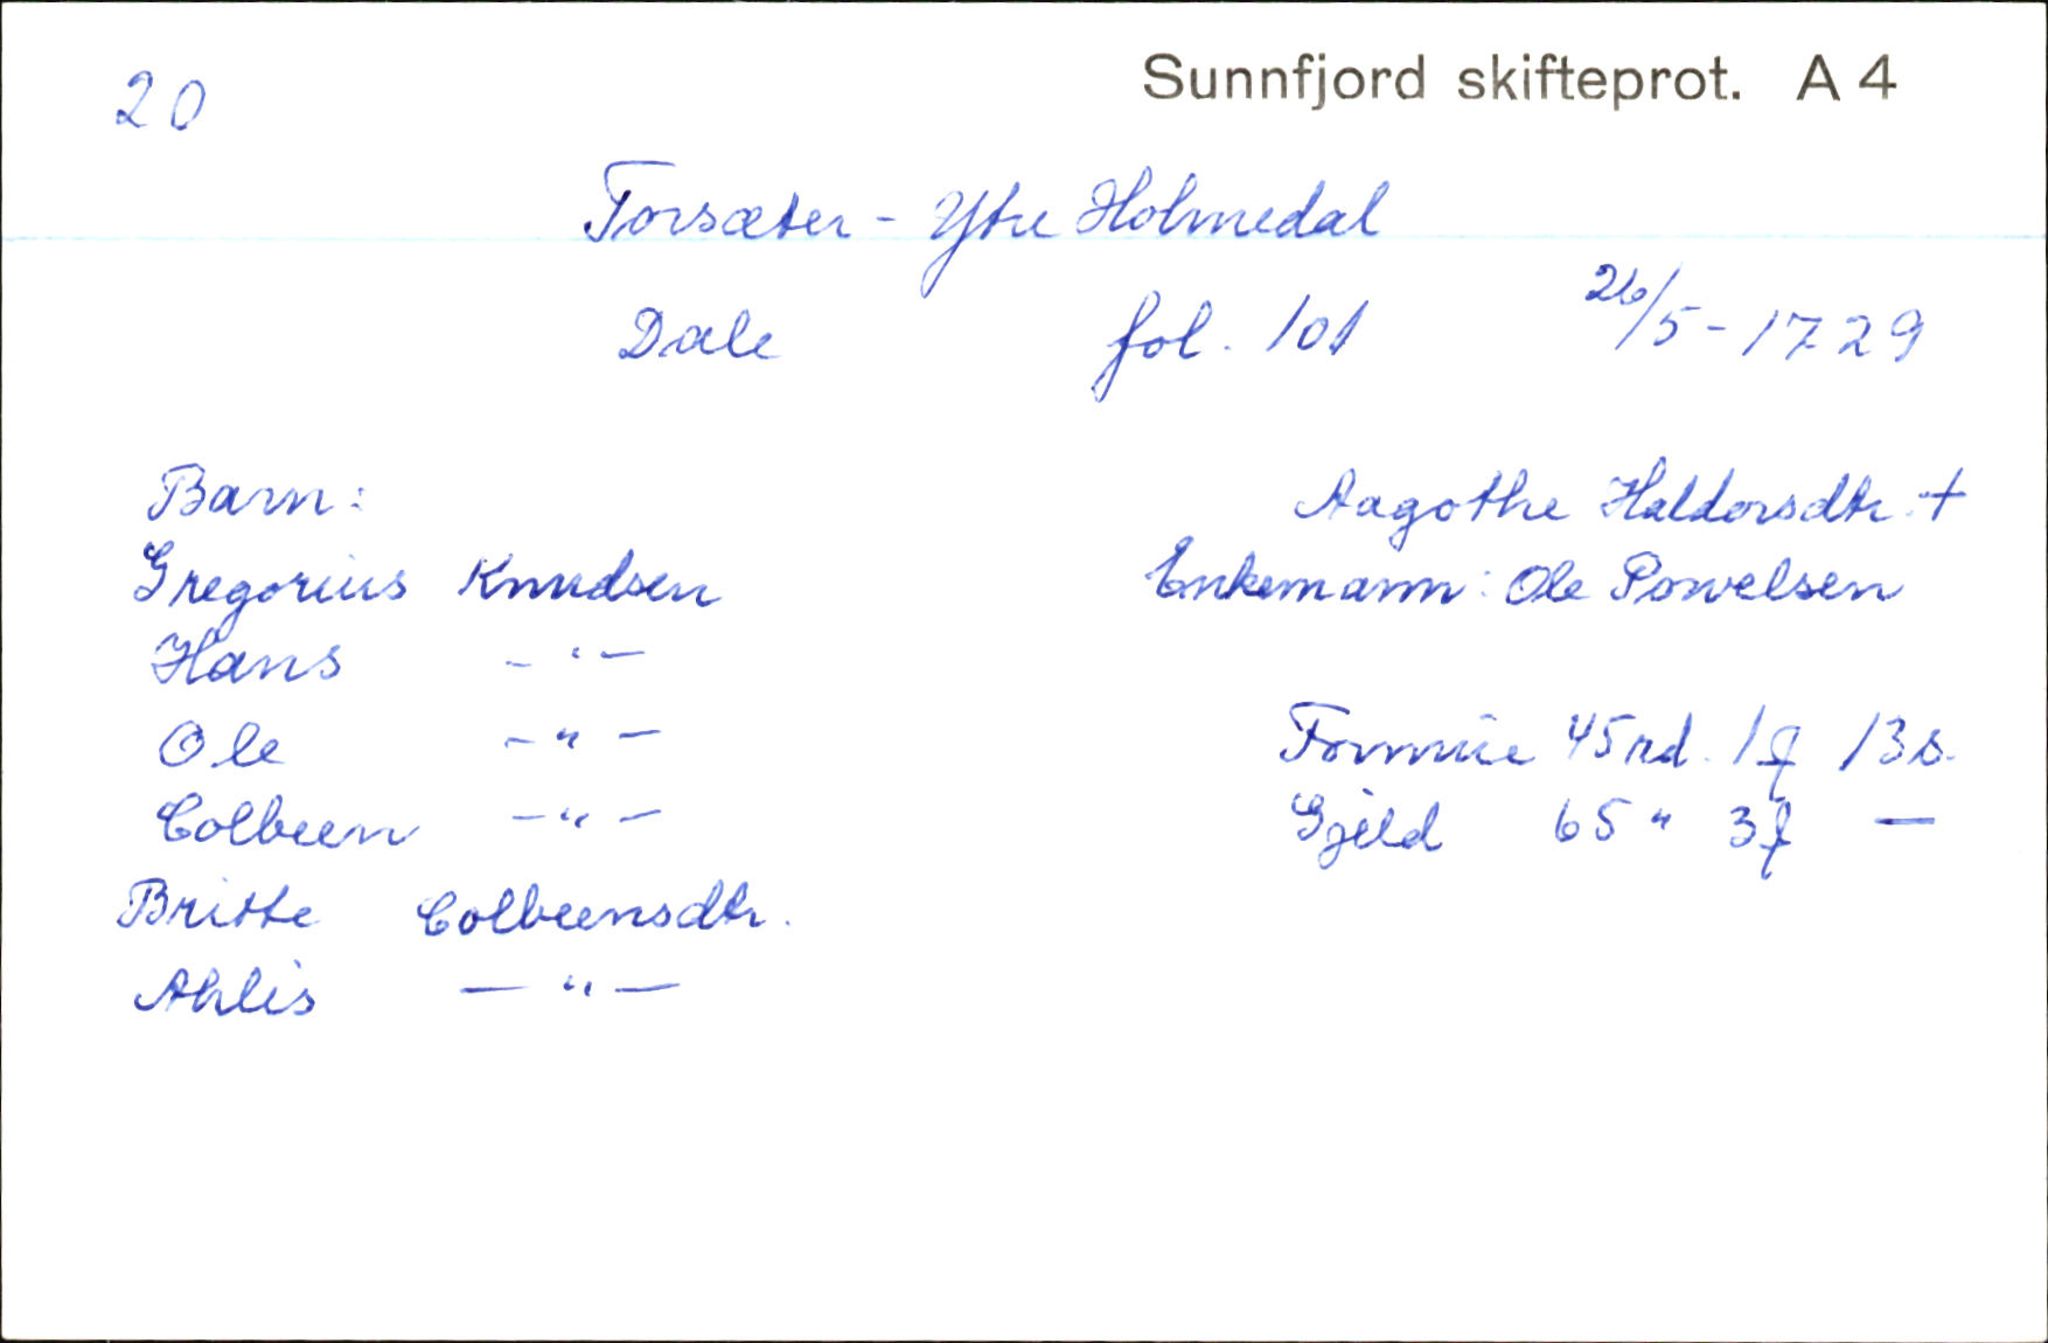 20
Sunnfjord skifteprot. A 4
Torsæter - Ytre Holmedal
Dale fol. 101 26/5-1729
Barn: Aagothe Haldorsdtr. +
Gregorius Knudsen Enkemann: Ole Powelsen
Hans - " -
Ole - " - Formue 45 rd. 1 ƒ 13 s.
Colbeen - " - Gjeld 65 " 3 ƒ —
Britte Colbeensdtr.
Ahlis — " —